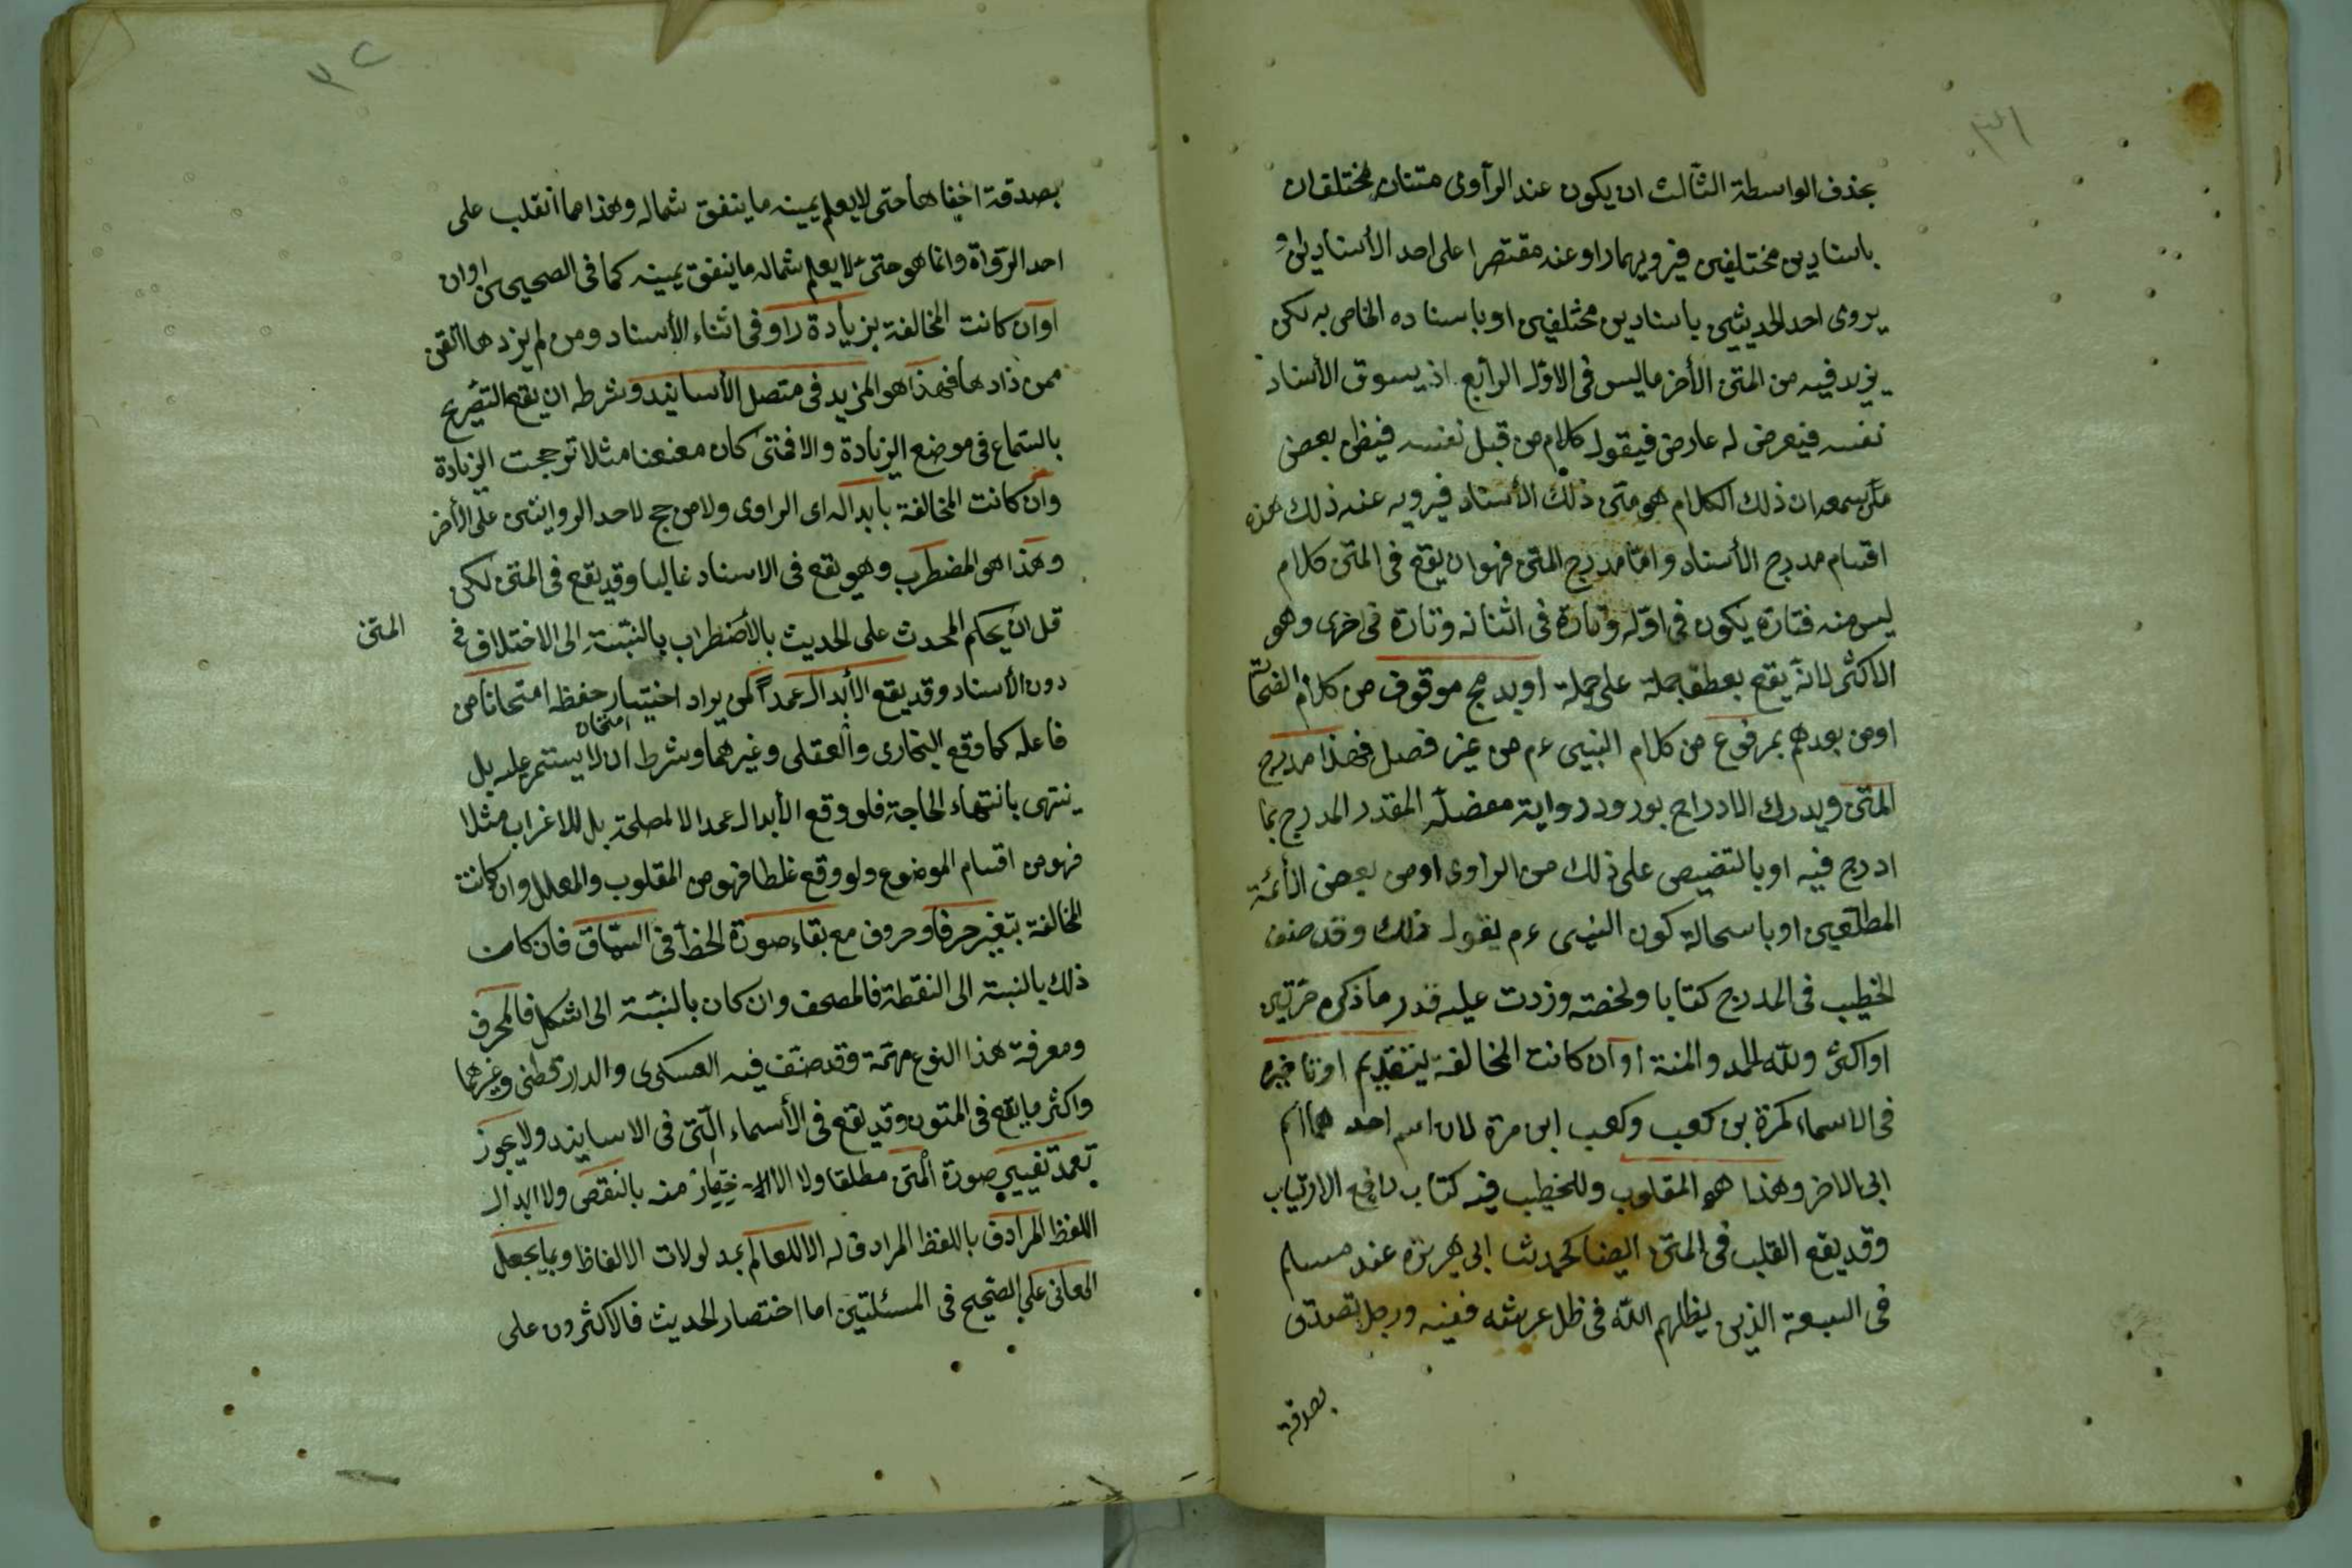 ٣١
بحذف الواسطة الثالث ان يكون عند الراوى متنان مختلفان
باسنادين مختلفين فيرويهما راو عنه مقتصرا على احد الأسنادين او
يروى احد الحديثين باسنادين مختلفين او باسناده الخاص به لكن
يزيد فيه من المتن الأخر ما ليس فى الاول الرابع اذ يسوق الأسناد
نفسه فيعرض له عارض فيقول كلام من قبل نفسه فيظن بعض
من سمعه ان ذلك الكلام هو متن ذلك الأسناد فيرويه عنه ذلك هذه
اقسام مدرج الأسناد واما مدرج المتن فهو ان يقع فى المتن كلام
ليس منه فتارة يكون فى اوله وتارة فى اثنانه وتارة فى اخرى وهو
الاكثر لانه يقع بعطف جملة على جملة او يدمج موقوف من كلام الضحاتة
او من بعدهم بمرفوع من كلام النبى ءم من غير فصل فهذا مدرج
المتن ويدرك الادراج بورود رواية مفضلة المقدر المدرج بما
ادرج فيه او بالتنصيص على ذلك من الراوى او من بعض الأئمة
المطلعين او باسحالة كون النبى ءم يقول ذلك وقد صنف
الخطيب فى المدرج كتابا ولخصته وزدت عليه قدر ما ذكره مرتين
او اكثر ولله الحمد والمنة او ان كانت المخالفة بتقديم او تاخير
فى الاسماء كمرة بن كعب وكعب ابن مرة لان اسم احدهما اسم
ابى الاخر وهذا هو المقلوب وللخطيب فيه كتاب رافع الارتياب
وقد يقع القلب فى المتن ايضا كحديث ابى هريرة عند مسلم
فى السبعة الذين يظلهم الله فى ظل عرشه ففيه ورجل تصدق
بصدقة
٣٢
بصدقة اخفاها حتى لا يعلم يمينه ما ينفق شماله وهذا مما انقلب على
احد الرواة وانما هو حتى لا يعلم شماله ما ينفق يمينه كما فى الصحيحين او ان
او ان كانت المخالفة بزيادة راو فى اثناء الأسناد ومن لم يزدها اتقن
ممن زادها فهذا هو المزيد فى متصل الأسانيد وشرطه ان يقع التصريح
بالسماع فى موضع الزيادة والا فمتى كان معنعنا مثلا ترججت الزيادة
وان كانت المخالفة بابداله اى الراوى ولا مرجح لاحد الروايتين على الأخر
وهذا هو المضطرب وهو يقع فى الاسناد غالبا وقد يقع فى المتن لكن
قل ان يحكم المحدث على الحديث بالأضطراب بالنسبة الى الاختلاف فى
المتن
دون الأسناد وقد يقع الأبدال عمدا لمن يراد اختبار حفظه امتحانا من
فاعله كما وقع البخارى والعقلى وغيرهما وشرط ان لا يستمر عليه بل
امتحان
ينتهى بانتهاء الحاجة فلو وقع الأبدال عمدا لا لمصلحة بل للاغراب مثلا
فهو من اقسام الموضوع ولو وقع غلطا فهو من المقلوب والمعلل وان كانت
المخالفة بتغير حرف او حروف مع بقاء صورة الخط فى السياق فان كانت
ذلك بالنسبة الى النقطة فالمصحف وان كان بالنسبة الى اشكل فالمحرف
ومعرفة هذا النوع مهمة وقد صنف فيه العسكرى والدارقطنى وغيرهما
واكثر ما يقع فى المتون وقد يقع فى الأسماء التى فى الاسانيد ولا يجوز
تعمد تغيير صورة المتن مطلقا ولا منه بالنقص ولا ابدال
اللفظ المرادف باللفظ المرادف له الا للعالم بمدلولات الالفاظ وبما يجعل
المعانى على الصحيح فى المسئلتين اما اختصار الحديث فالاكثرون على